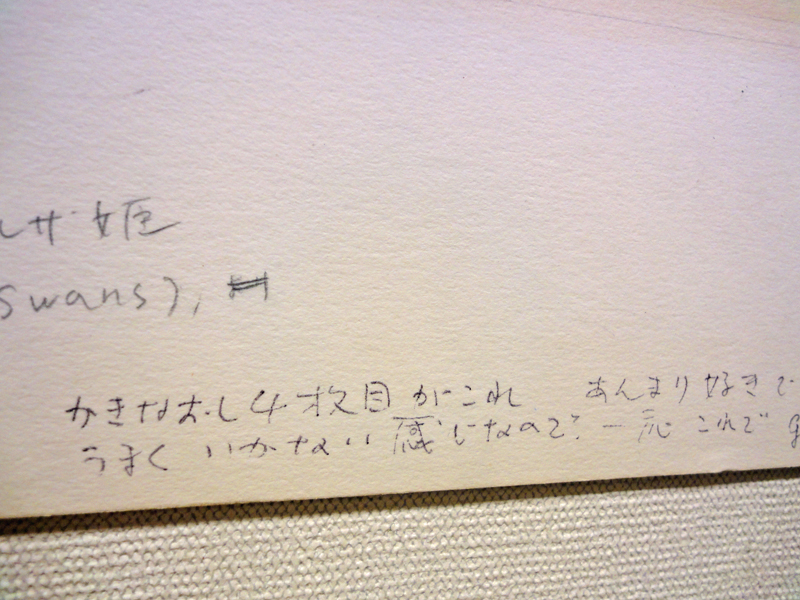 ルザ姫
swans),
かきなおし4枚目がこれ あんまり好きで
うまくいかない感じなので、一応これで